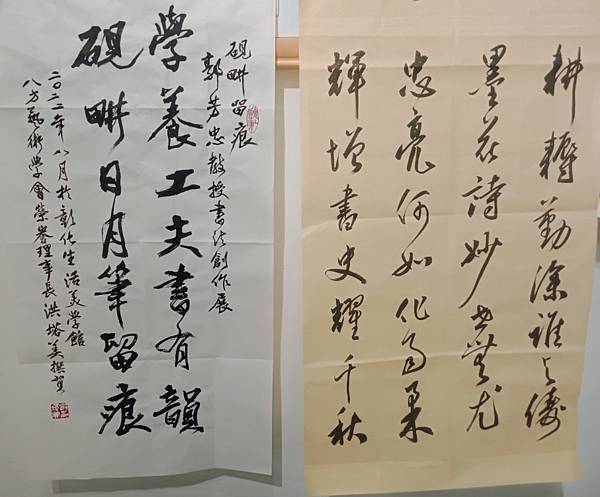 耕耨勤深誰与儔
墨花詩妙無尤
忠亮何如化柔
輝增書史耀千秋
硯畊留痕
郭芳忠教授書法創作展
學養工夫書有韻
硯畊日月筆留痕
二〇二二年八月於彰化生活美學館
八方藝術學會榮譽理事長洪塔美撰賀